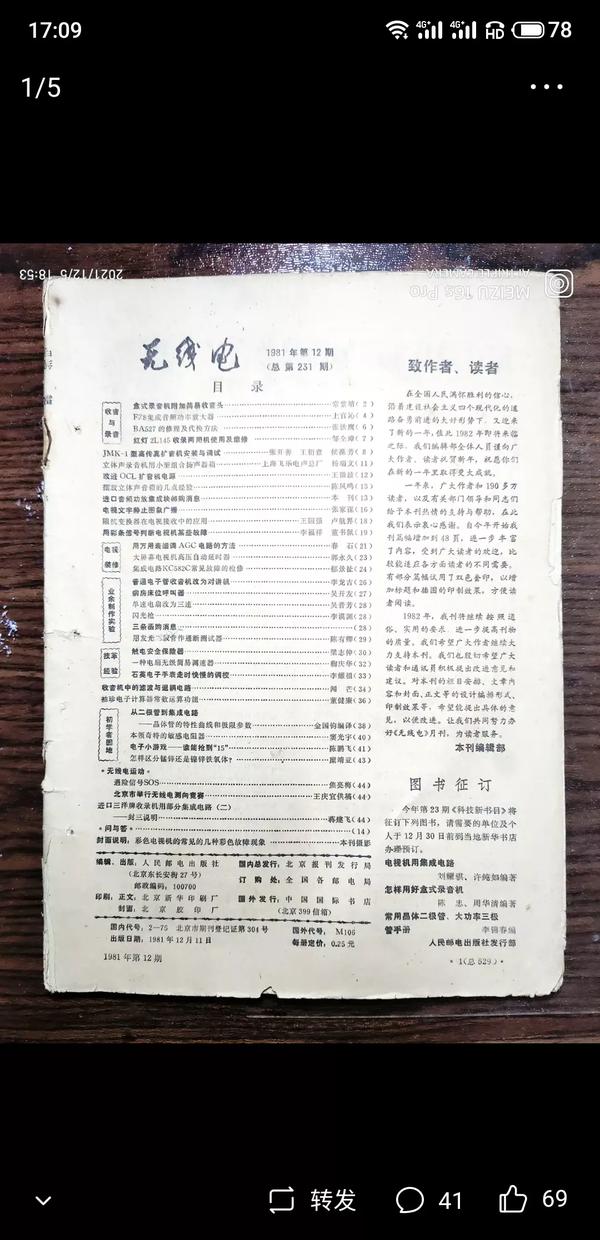 17:09
4G+ 4G+ HD 78
1/5
2021/12/5 18:53
MEIZU 16s Pro
无线电
1981年第12期
(总第231期)
目 录
收音与录音
盒式录音机附加简易收音头
F78集成音频功率放大器
BA527的修理及代换方法
红灯2L145收录两用机使用及维修
JMK-1型高传真扩音机安装与调试
立体声录音机用小型组合扬声器箱 上海飞乐电声总厂 杨瑞文(11)
改进OCL扩音机电源
摆放立体声音箱的几点经验 陈凤鸣(13)
进口音频功放集成块邮购消息 本刊(13)
电视文字静止图象广播 张家谋(16)
用彩条信号判断电视机某些故障 李福祥
电视装修
用万用表追调AGC电路的方法 春石(21)
大屏幕电视机高压自动延时器 郭永久(23)
集成电路KC582C常见故障的检修
业余制作实验
普通电子管收音机改为对讲机 李龙吉(26)
病房床位呼叫器 吴开友(27)
单速电扇改为三速 (28)
闪光枪 (28)
三条函购消息 (28)
(29)
技革经验
触电安全保险器 梁志仲(30)
一种电扇无级简易调速器 (32)
石英电子手表走时快慢的调校 (33)
收音机中的滤波与退耦电路 闻芒(34)
袖珍电子计算器常数运算功能 董健康(36)
初学者园地
从二极管到集成电路
——晶体管的特性曲线和极限参数 金国钧编译(38)
本领奇特的敏感电阻器 窦光宇(40)
电子小游戏——谁能抢到“15” 陈鹏飞(41)
怎样区分锰锌还是镍锌铁氧体? 糜靖亚(43)
*无线电运动*
遇险信号SOS 焦亮梅(44)
北京市举行无线电测向竞赛 王庆宜供稿(44)
进口三洋牌收录机用部分集成电路(二)
——封三说明 蒋建飞(44)
*问与答* (14)
封面说明:彩色电视机的常见的几种彩色故障现象 本刊摄影
编辑、出版:人民邮电出版社
(北京东长安街27号)
邮政编码:100700
印刷:正文:北京新华印刷厂
封面:北京胶印厂
国内总发行:北京报刊发行局
订购处:全国各邮电局
国外发行:中国国际书店
(北京399信箱)
国内代号:2—75 北京市期刊登记证第304号
出版日期:1981年12月11日
国外代号:M106
每册定价:0.25元
1981年第12期
致作者、读者
在全国人民满怀胜利的信心,
沿着建设社会主义四个现代化的道
路奋勇前进的大好形势下,又迎来
了新的一年,值此1982年即将来临
之际,我们编辑部全体人员谨向广
大作者、读者祝贺新年,祝愿你们
在新的一年里取得更大成就。
一年来,广大作者和190多万
读者,以及有关部门领导和同志们
给予本刊热情的支持与帮助,在此
我们表示衷心感谢。自今年开始我
刊篇幅增加到48页,进一步丰富
了内容,受到广大读者的欢迎,比
较能适应各方面读者的不同需要。
有部分篇幅试用了双色套印,以增
加标题和插图的印制效果,方便读
者阅读。
1982年,我刊将继续按照通
俗、实用的要求,进一步提高刊物
的质量。我们希望广大作者继续大
力支持本刊。我们也殷切希望广大
读者和通讯员积极提出改进意见和
建议。对本刊的栏目安排、文章内
容和封面、正文等的设计编排形式、
印制效果等,希望能提出具体的意
见,以便改进。让我们共同努力办
好《无线电》月刊,为读者服务。
本刊编辑部
图书征订
今年第23期《科技新书目》将
征订下列图书,请需要的单位及个
人于12月30日前到当地新华书店
办理预订。
电视机用集成电路
刘耀祺、许纯如编著
怎样用好盒式录音机
陈志、周华清编著
常用晶体二极管、大功率三极
管手册 李锦春编
人民邮电出版社发行部
*1(总529)*
转发
41
69